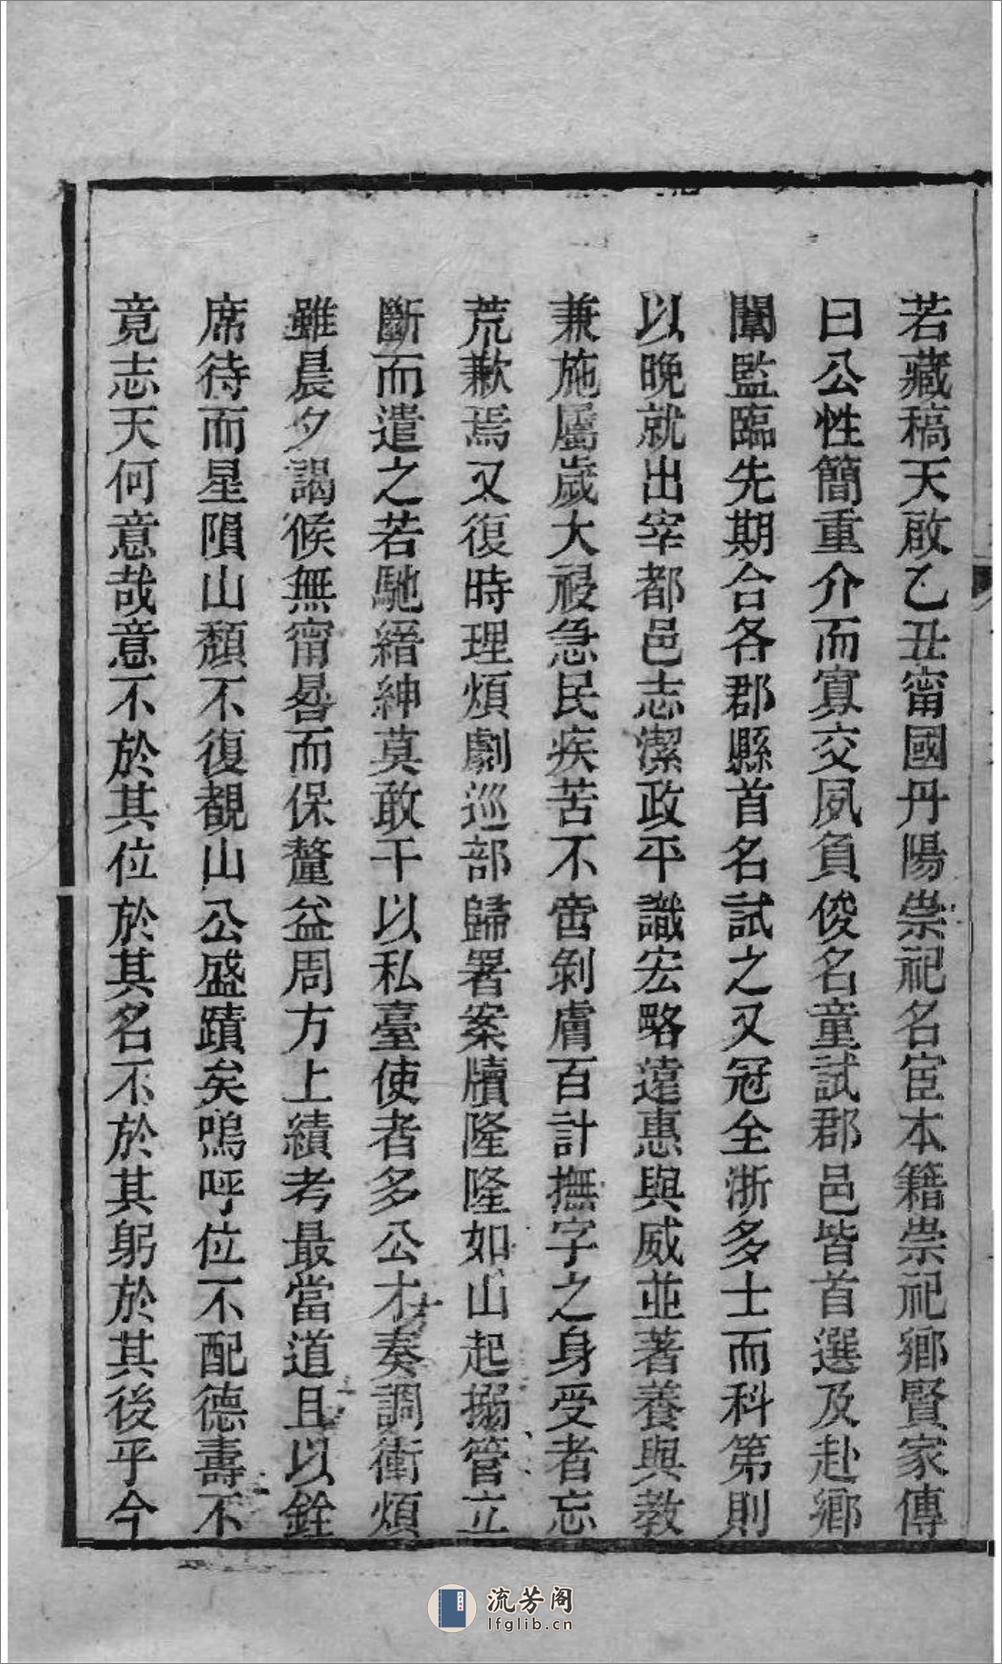 若藏稿天啟乙丑甯國丹陽祟祀名宦本籍祟祀鄉賢家傳
曰公性簡重介而寡交夙負俊名童試郡邑皆首選及赴鄉
闈監臨先期合各郡縣首名試之又冠全浙多士而科第則
以晚就出宰都邑志潔政平識宏略遠惠與威並著養與敎
兼施屬歲大祲急民疾苦不啻剝膚百計撫字之身受者忘
荒歉焉又復時理煩劇巡部歸署案牘隆隆如山起搦管立
斷而遣之若馳縉紳莫敢干以私臺使者多公才奏調衝煩
雖晨夕謁候無甯晷而保釐益周方上績考最當道且以銓
席待而星隕山頹不復覩山公盛蹟矣嗚呼位不配德壽不
竟志天何意哉意不於其位於其名不於其躬於其後乎今
流芳阁
lfglib.cn